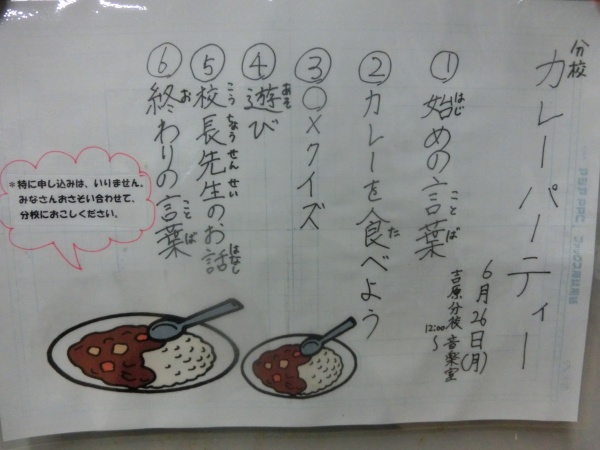 分校
カレーパーティー
6月26日(月)
吉原分校 音楽室
12:00~
①始めの言葉
はじ
ことば
②カレーを食べよう
た
③○×クイズ
④遊び
あそ
⑤校長先生のお話
こうちょうせんせい
はなし
⑥終わりの言葉
お
ことば
*特に申し込みは、いりません。
みなさんおさそい合わせて、
分校におこしください。